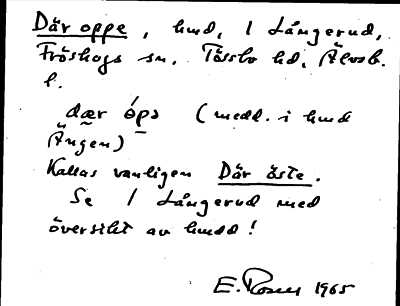 Där oppe, hmd, 1 Långerud,
Fröskogs sn. Tössbo hd, Älvsb.
l.
dær ópə (medd. i hmd
Ängen)
Kallas vanligen Där öste.
Se 1 Långerud med
översikt av hmdd!
E. Rosén 1965